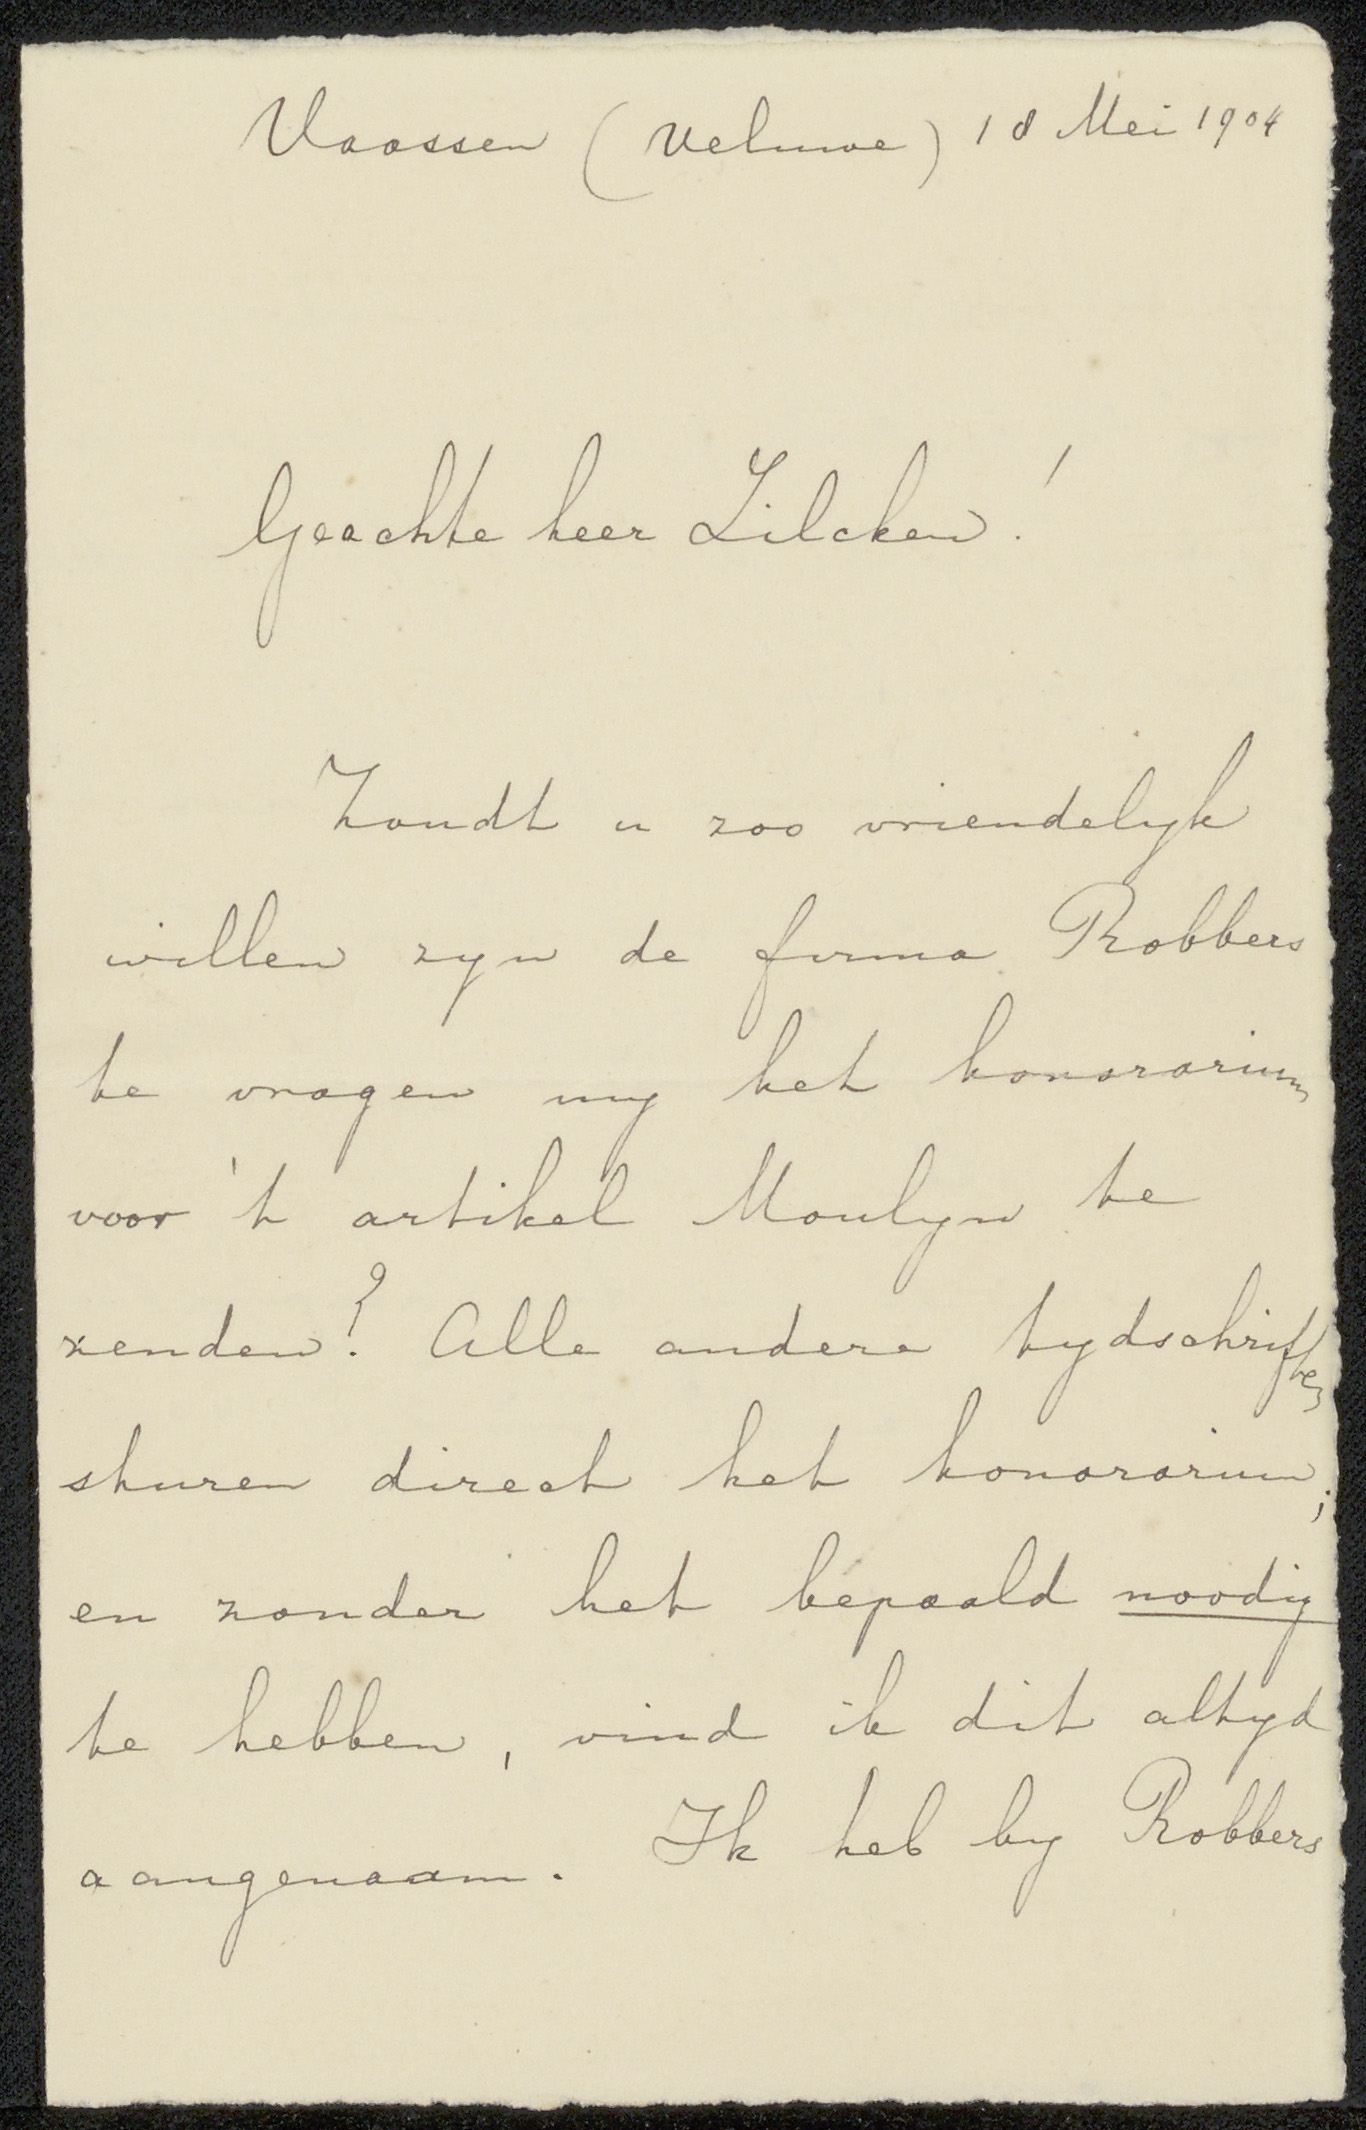 Vaassen (Veluwe) 18 Mei 1904
Geachte heer Zilcken!
Zoudt u zoo vriendelyk
willen zyn de firma Robbers
te vragen my het honorarium
voor 't artikel Moulyn te
zenden? Alle andere tydschriften
sturen direct het honorarium;
en zonder het bepaald noodig
te hebben, vind ik dit altyd
aangenaam. Ik heb by Robbers